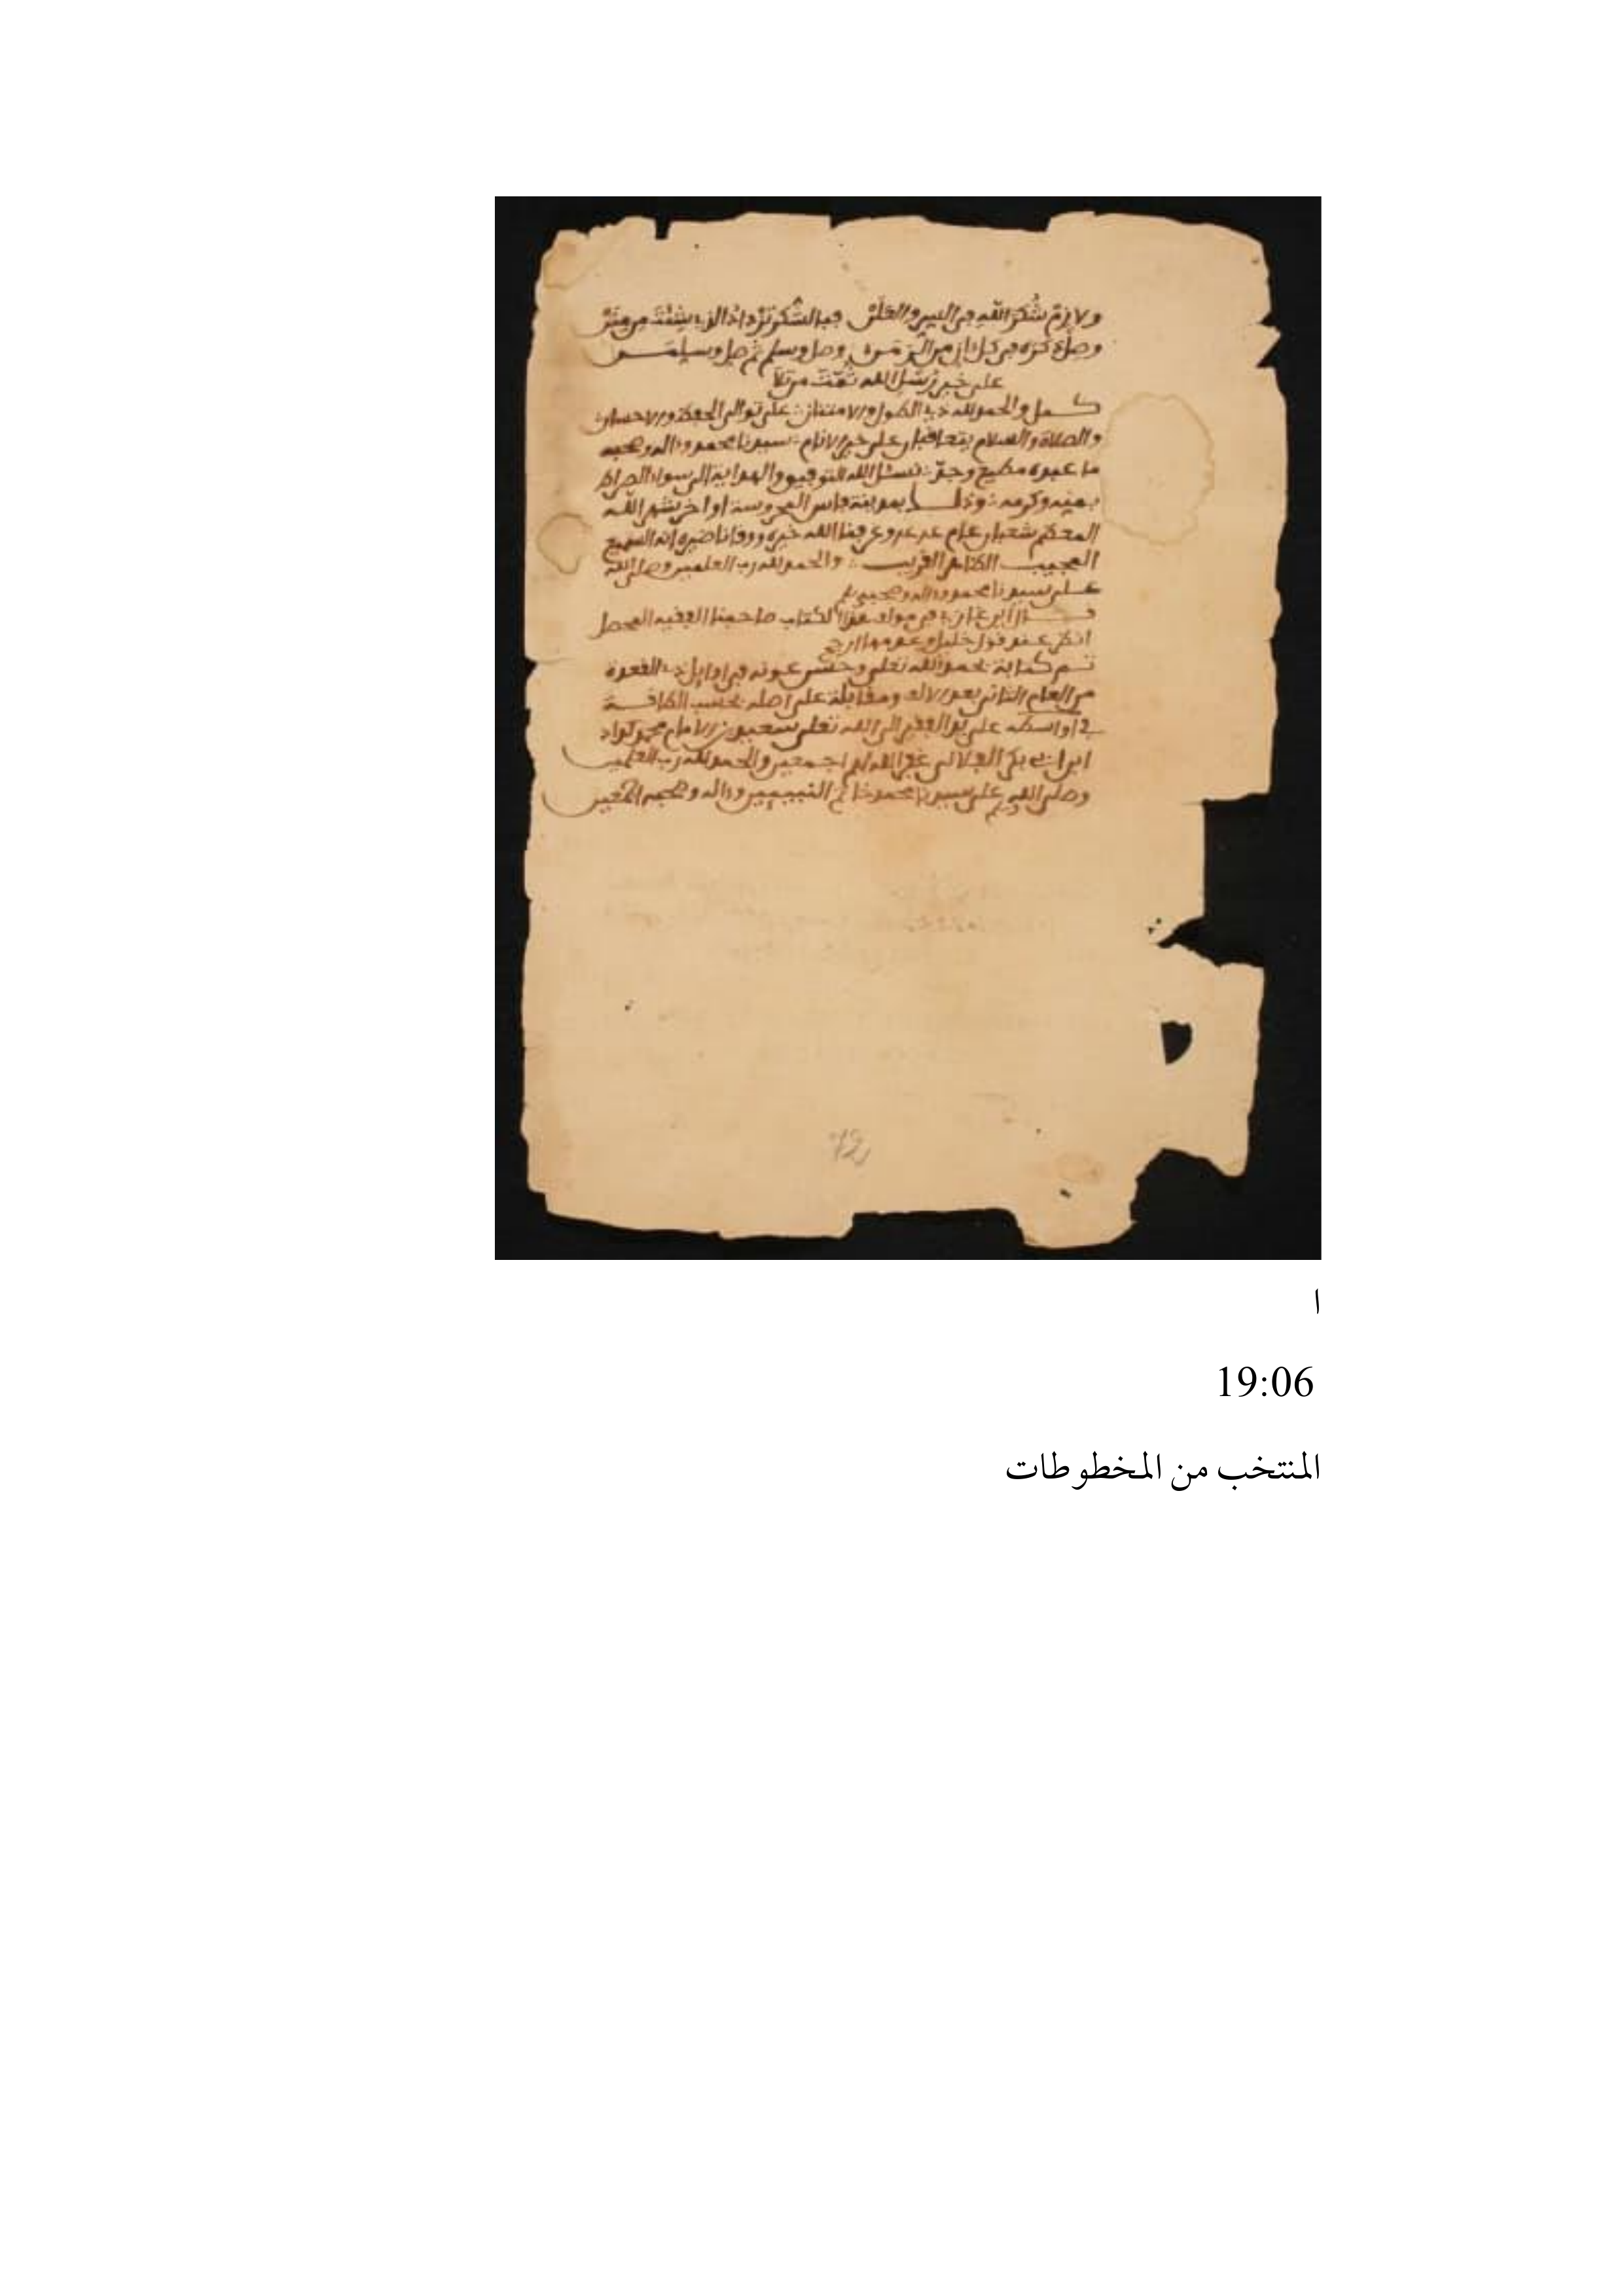 ولازم شكر الله في السر والعلن فبالشكر تزداد الذي شئت من منن
وصل
على خير رسل الله تمت مرتلا
كمل والحمد لله ذي الطول والامتنان على توالي الحفظ والاحسان
والصلاة والسلام يتعاقبان على خير الانام سيدنا محمد وءاله وصحبه
ما عبده مطيع وجد نسئل الله التوفيق والهداية الى سواء الصراط
بمنه وكرمه وذلك بمدينة فاس المحروسة اواخر شهر الله
المعظم شعبان عام عرفنا الله خيره ووفانا ضيره انه السميع
المجيب القريب والحمد لله رب العلمين وصلى الله
على سيدنا محمد وءاله وصحبه
قال ابن غازي في مولف هذا الكتاب صاحبنا الفقيه المحصل
انظر عند قول خليل
تم كتابة بحمد الله تعلى وحسن عونه في اوايل ذي القعدة
من العام الثاني بعد الالف ومقابلة على اصله بحسب الطاقة
في اواسطه على يد الفقير الى الله تعلى سعيد بن الامام محمد
ابن ابي بكر غفر الله لهم اجمعين والحمد لله رب العلمين
وصلى الله على سيدنا محمد خاتم النبيين وءاله وصحبه اجمعين
ا
19:06
المنتخب من المخطوطات